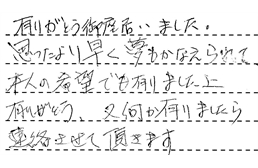 有りがとう御座居いました。
思ったより早く夢もかなえられて、
本人の希望でも有りました上
有りがとう、又何か有りましたら
連絡させて頂きます